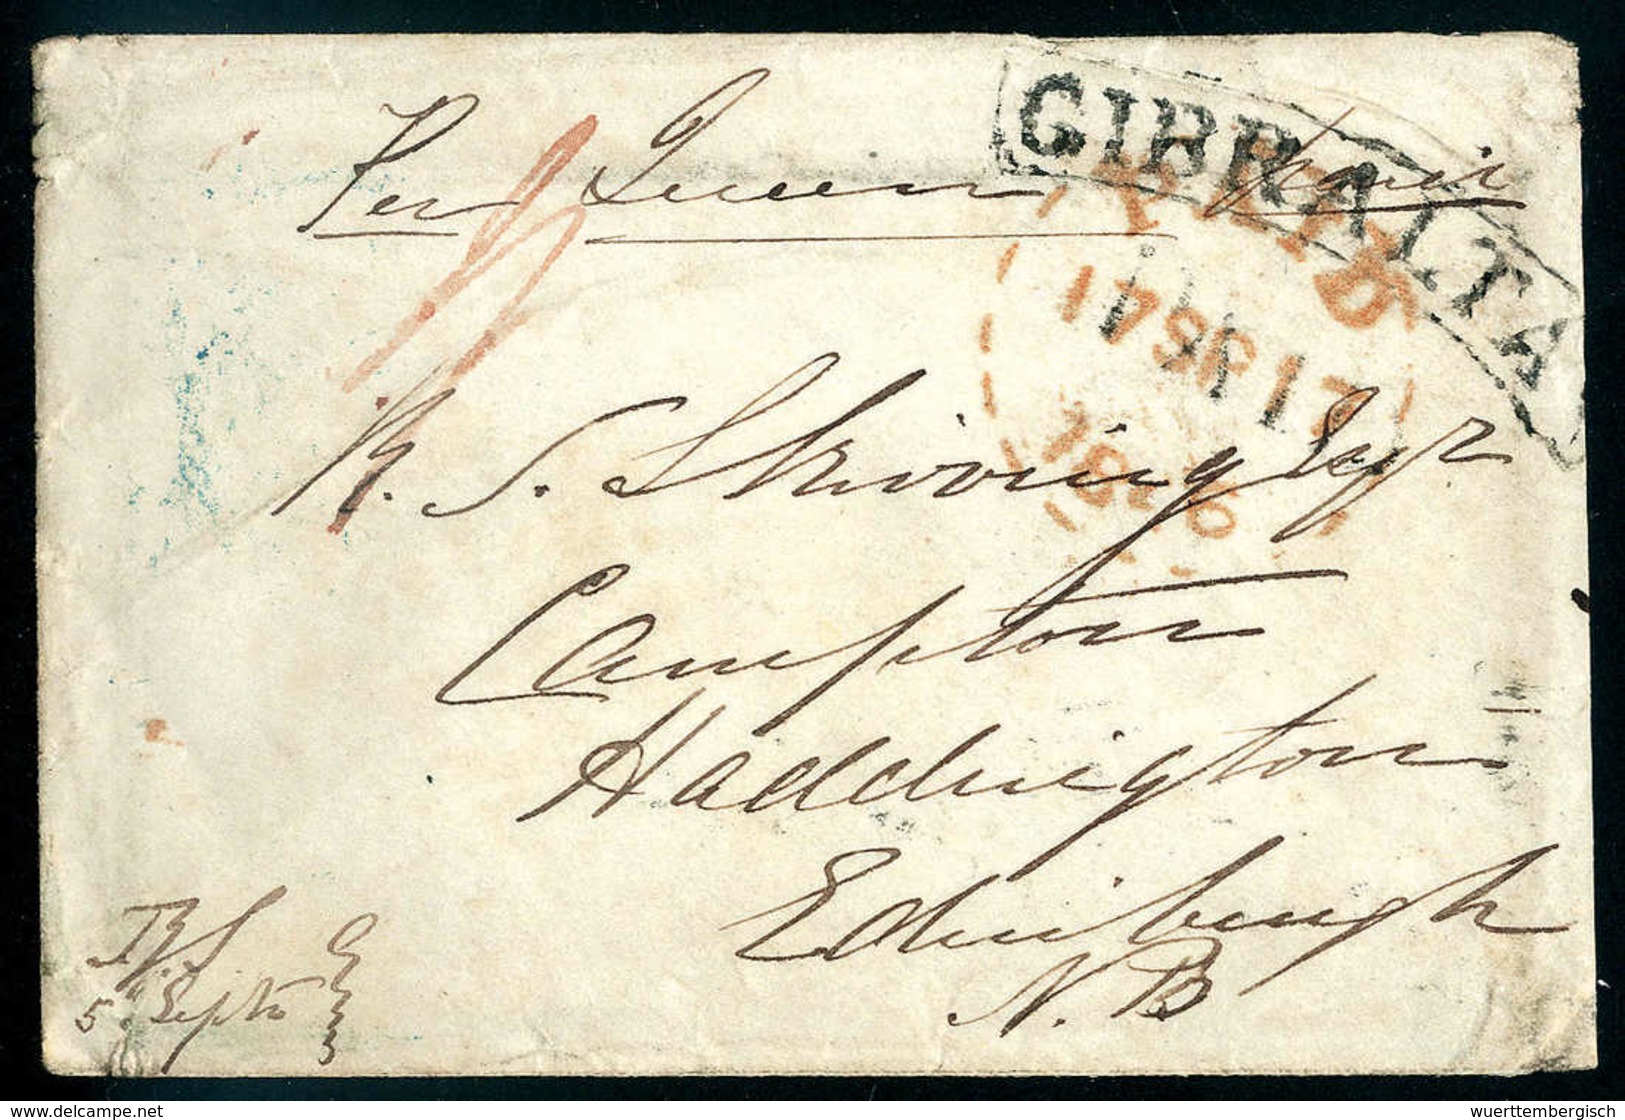 Per Queen paid
GIBRALTA
PAID
17 SP 17
1846
R. S. Skirving Esqr
Campton
Haddington
Edinburgh
N. B
5 Septr
www.delcampe.net
wuerttembergisch